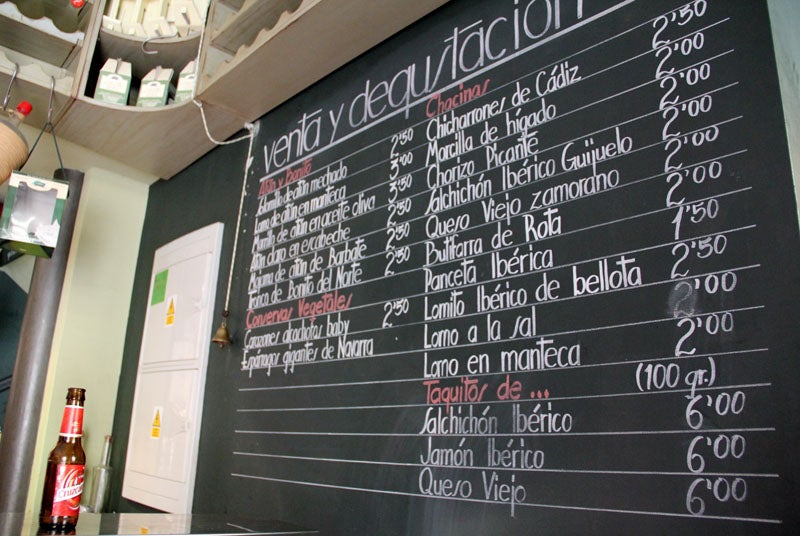 venta y degustación
Atún y Bonito
Solomillo de atún mechado 2'50
Lomo de atún en manteca 3'00
Morrillo de atún en aceite oliva 3'50
Atún claro en escabeche 2'50
Mojama de atún de Barbate 2'50
Tronco de Bonito del Norte 2'50
Conservas Vegetales
Corazones alcachofas baby 2'50
Espárragos gigantes de Navarra
Chacinas
Chicharrones de Cádiz 2'50
Morcilla de hígado 2'00
Chorizo Picante 2'00
Salchichón Ibérico Guijuelo 2'00
Queso Viejo zamorano 2'00
Butifarra de Rota 2'00
Panceta Ibérica 1'50
Lomito Ibérico de bellota 2'50
Lomo a la sal 2'00
Lomo en manteca 2'00
Taquitos de ... (100 gr.)
Salchichón Ibérico 6'00
Jamón Ibérico 6'00
Queso Viejo 6'00
Cruzcampo